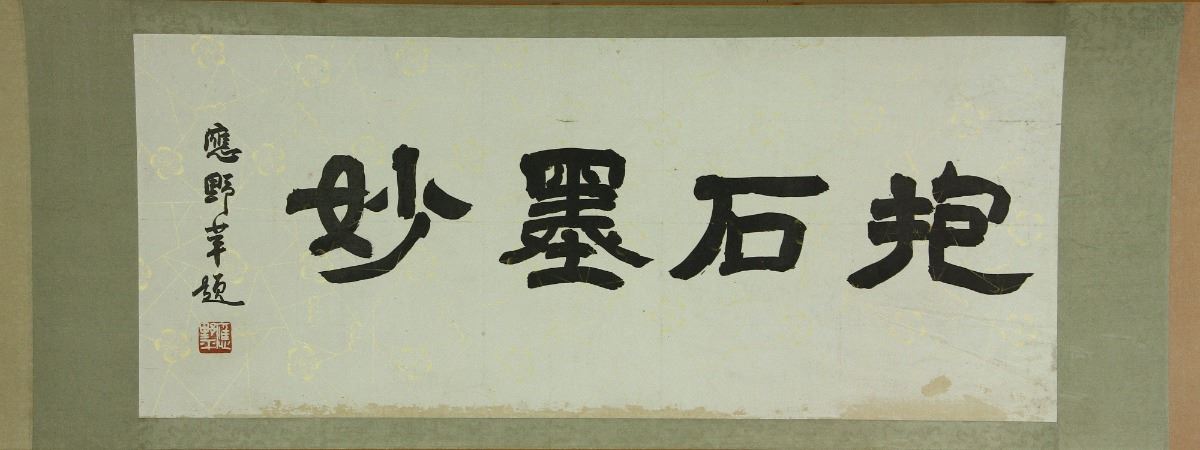 抱石墨妙
應野苹題